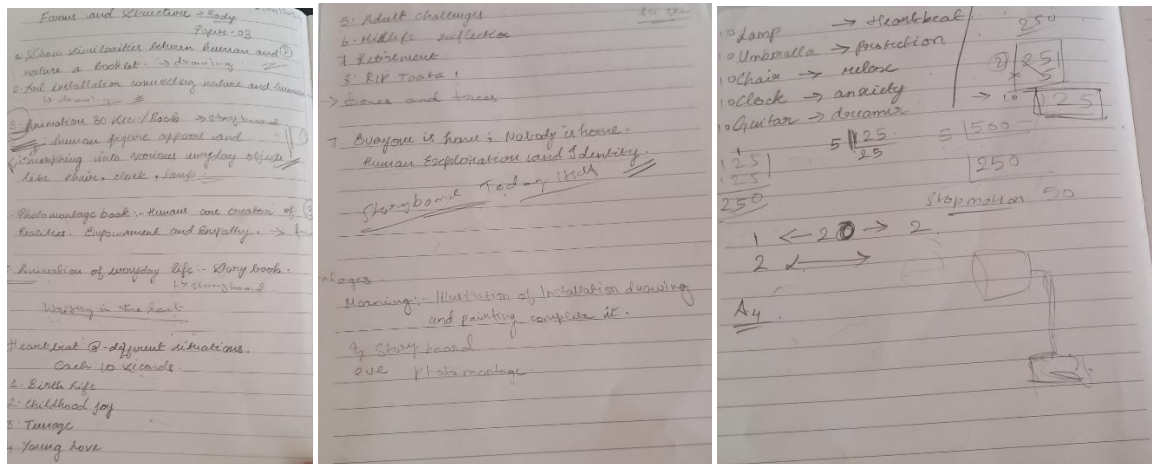 Forms and Structure → Body
Paper - 03
1. Show similarities between human and
nature a booklet. → drawing
2. Art installation connecting nature and human
3. Animation 30 sec / Book → storyboard
human figure appear and
morphing into various everyday objects
like chair, clock, lamp
Photomontage book :- Humans are creator of
Realities. Empowerment and Empathy. →
Animation of everyday life :- Story book.
↳ storyboard
Writing in the last
Heartbeat @ different situations.
Each 10 seconds.
1. Birth Life
2. Childhood joy
3. Teenage
4. Young Love
5. Adult Challenges
6. Midlife reflection
7. Retirement
8. RIP Taata !
→ and trees
Everyone is home ; Nobody is home.
Human Exploration and Identity.
Storyboard Today itself
Morning :- Illustration of Installation drawing
and painting complete it.
Storyboard
Eve photomontage
10 Lamp → Heartbeat
10 Umbralla → protection
10 Chair → relax
10 Clock → anxiety
10 Guitar → dreamer
250
② 25
× 5
→ 10 125
5 125
25
5 500
250
125
125
250
Stopmotion 50
1 ← 20 → 2
2 ⟵⟶
A4